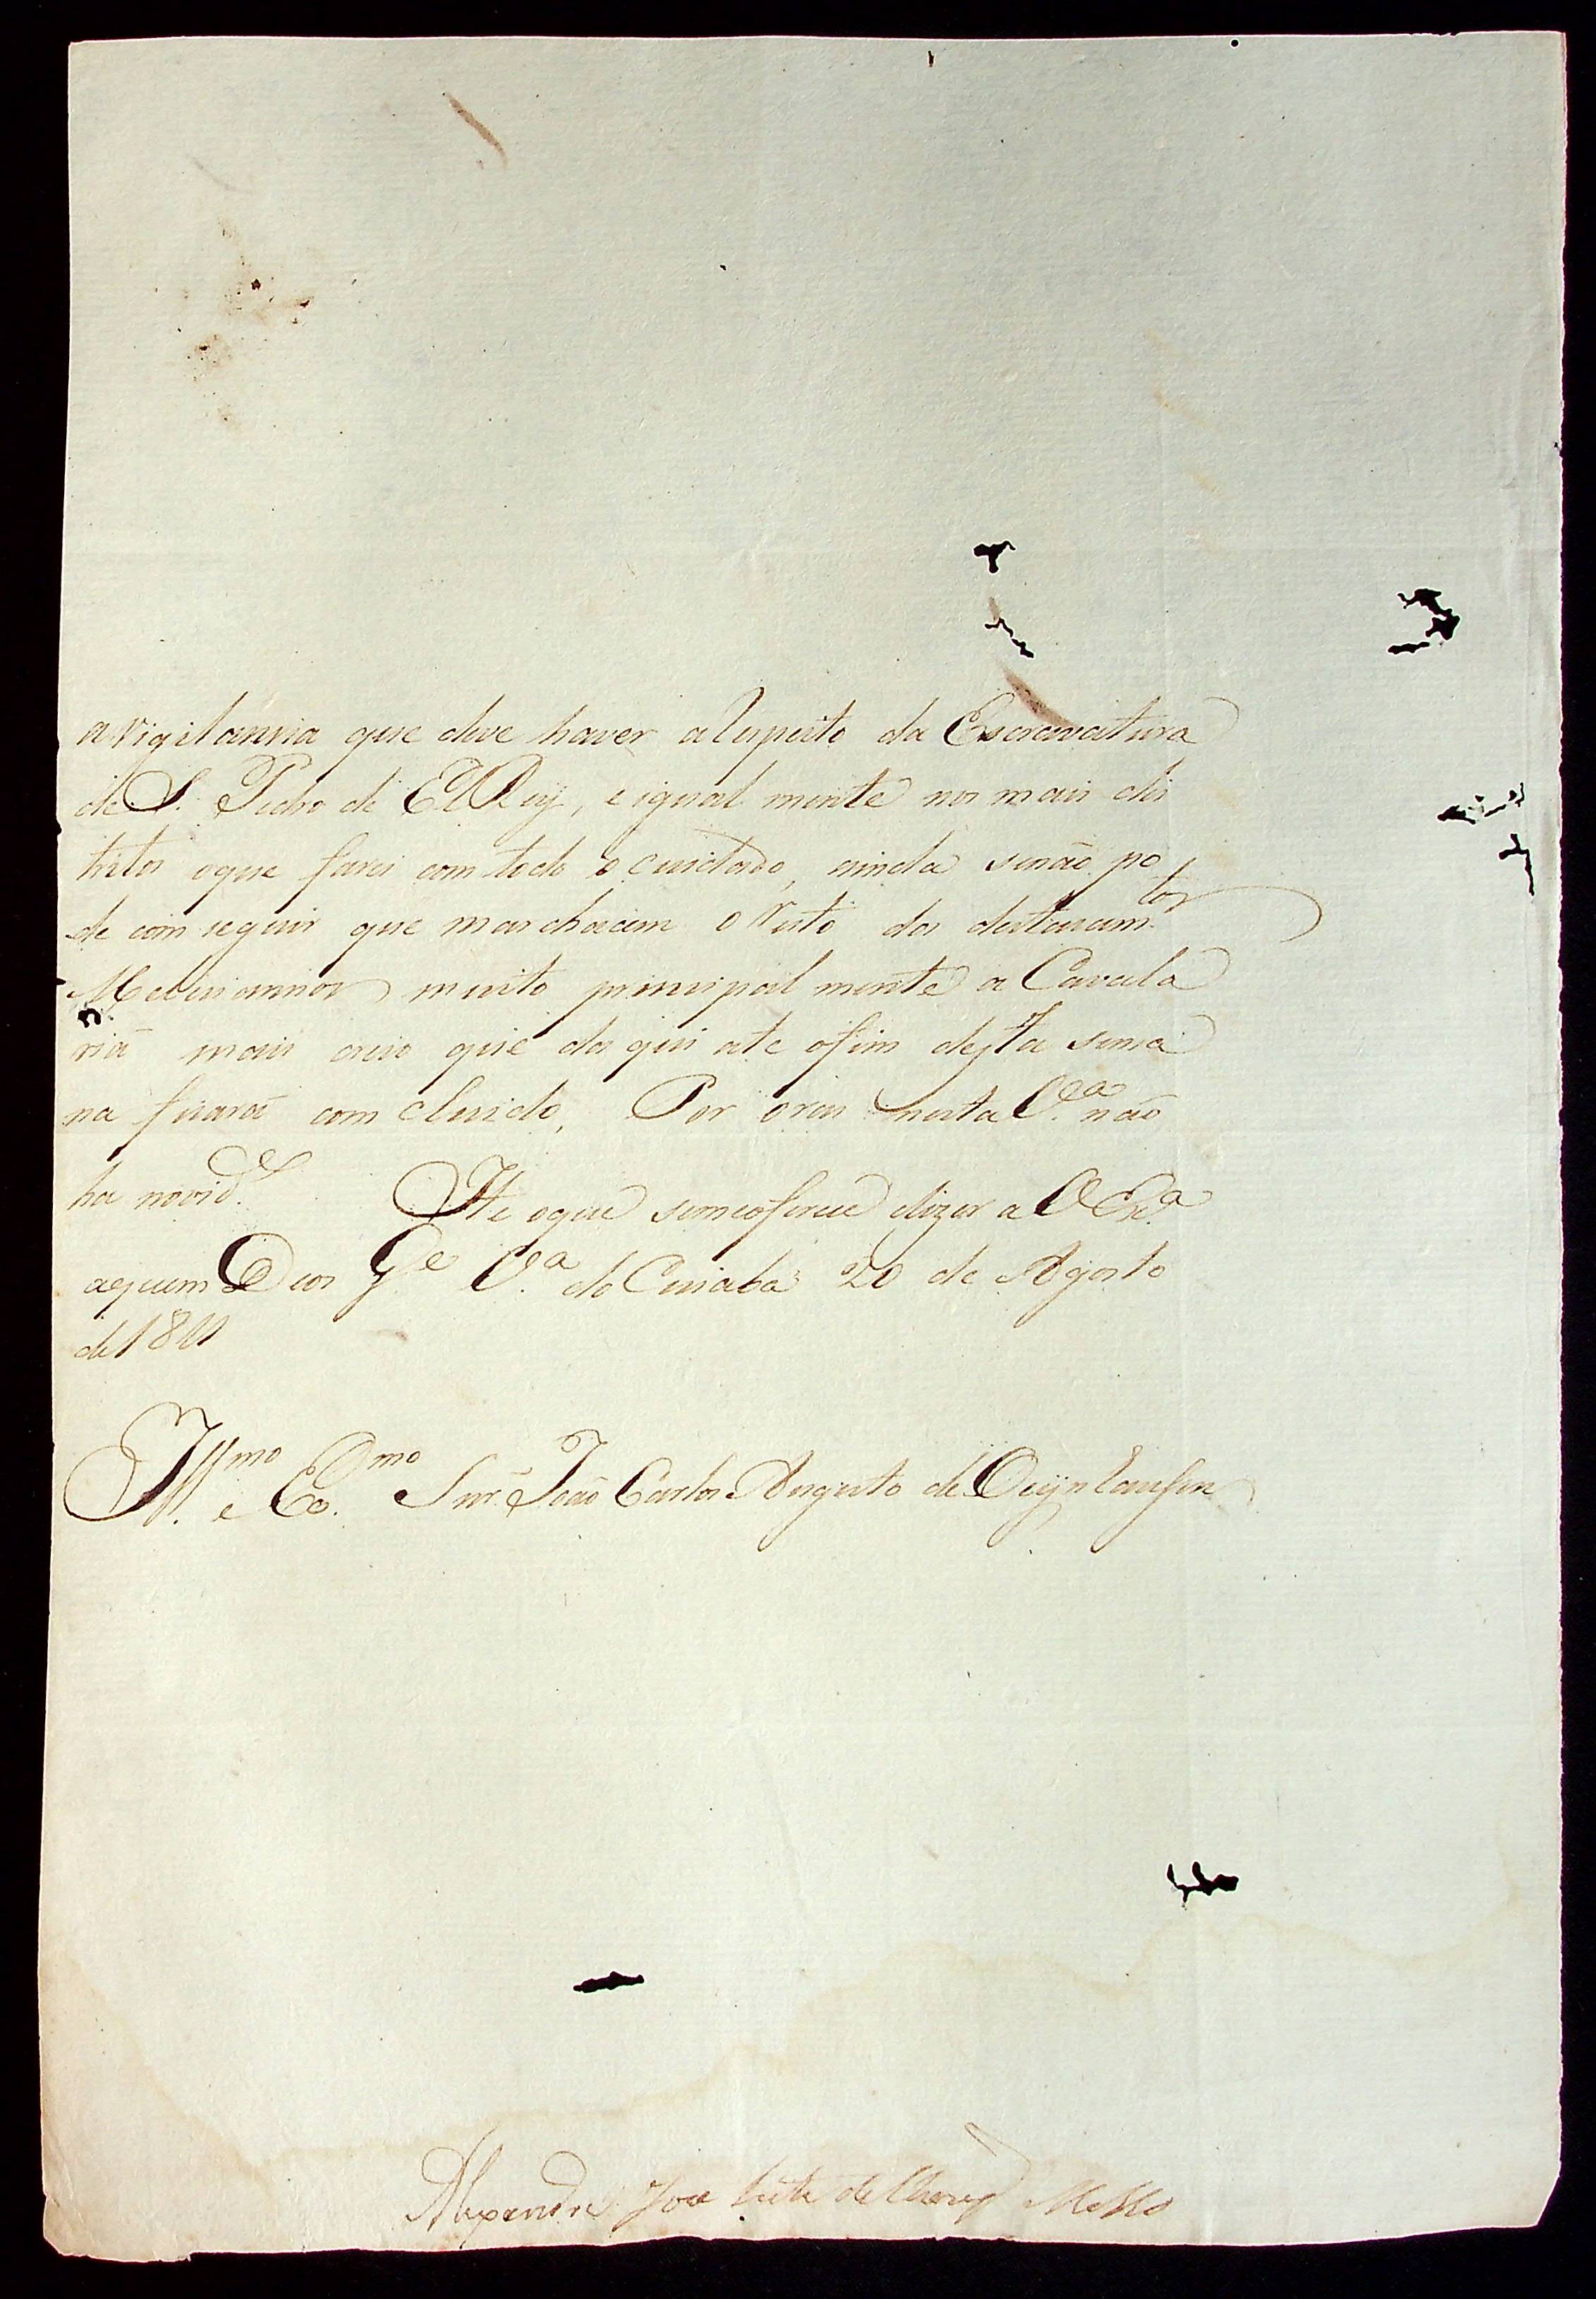 a vigilancia que deve haver a Respeito da Escravatura
de S. Pedro de El Rey, e igual mente nos mais dis
tritos oque farei com todo o cuidado, ainda senão po
de com seguir que marchacem o Resto dos destacam.tos
Meliciannos muito principal mente a Cavala
ria mais creio que da qui ate ofim desta sema
na ficará com cluido, Por ora nesta V.a não
ha novid.e He oque seme oferece dizer a V Ex.a
aquem Deos G.e V.a do Cuiaba 20 de Agosto
de 1811
Ill.mo e Ex.mo Snr. João Carlos Augusto de Oeynhausen
Alexandre Joze Leite de Chaves Mello